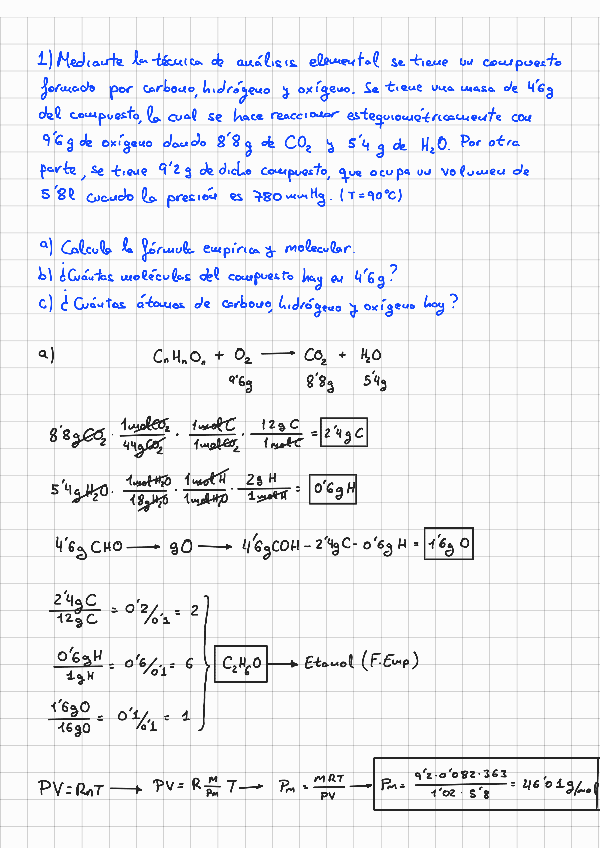 1) Mediante la técnica de análisis elemental se tiene un compuesto
formado por carbono, hidrógeno y oxígeno. Se tiene una masa de 4'6g
del compuesto, la cual se hace reaccionar estequiométricamente con
9'6g de oxígeno dando 8'8g de CO₂ y 5'4 g de H₂O. Por otra
parte, se tiene 9'2 g de dicho compuesto, que ocupa un volumen de
5'8l cuando la presión es 780 mmHg. (T=90°C)
a) Calcula la fórmula empírica y molecular.
b) ¿Cuántas moléculas del compuesto hay en 4'6g?
c) ¿Cuántos átomos de carbono, hidrógeno y oxígeno hay?
a) CₙHₙOₙ + O₂ → CO₂ + H₂O
9'6g 8'8g 5'4g
8'8gCO₂ · 1molCO₂/44gCO₂ · 1molC/1molCO₂ · 12gC/1molC = 2'4gC
5'4gH₂O · 1molH₂O/18gH₂O · 1molH/1molH₂O · 2gH/1molH = 0'6gH
4'6gCHO → gO → 4'6gCOH - 2'4gC - 0'6gH = 1'6gO
2'4gC/12gC = 0'2/0'1 = 2
0'6gH/1gH = 0'6/0'1 = 6 C₂H₆O → Etanol (F.Emp)
1'6gO/16gO = 0'1/0'1 = 1
PV=RnT → PV=R m/Pm T → Pm = mRT/PV → Pm = 9'2·0'082·363/1'02·5'8 = 46'01g/mol